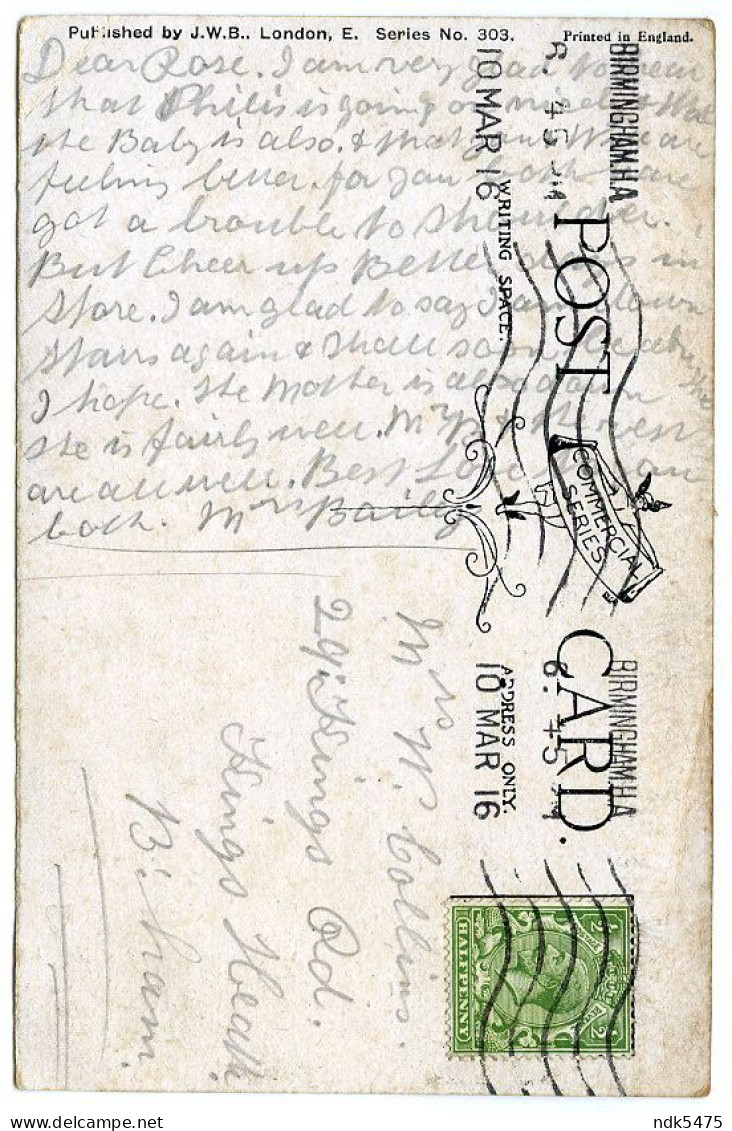 Published by J.W.B., London, E. Series No. 303.
Printed in England.
Dear Rose. I am very glad to hear
that Philis is going on nicely &
the Baby is also. & that you & W are
feeling better. for you both have
got a trouble to shoulder.
But Cheer up Better times in
Store. I am glad to say I am down
Stairs again & shall soon be about
I hope. the Mother is also down
she is fairly well. Mr B & the rest
are all well. Best Love to you
both. Mrs Baily
WRITING SPACE.
POST CARD.
COMMERCIAL
SERIES
ADDRESS ONLY.
BIRMINGHAM.H.A
6. 45
10 MAR 16
BIRMINGHAM.H.A
6. 45
10 MAR 16
Mrs W. Collins.
29. Kings Rd.
Kings Heath
B:ham.
HALFPENNY
ndk5475